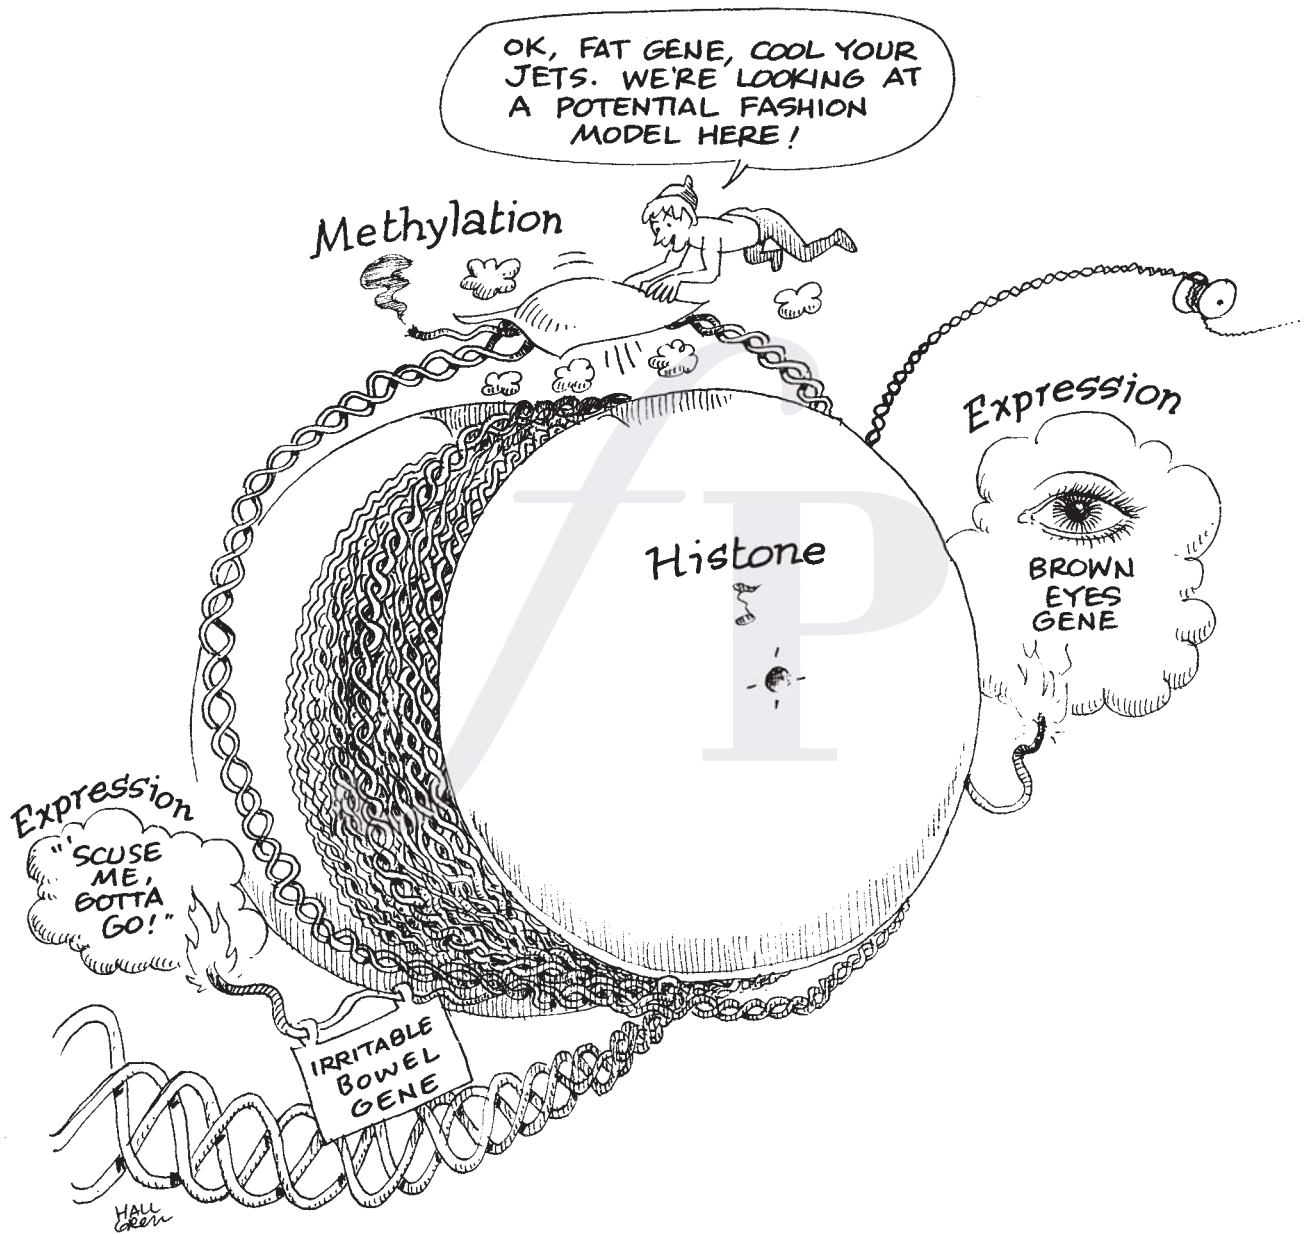 OK, FAT GENE, COOL YOUR
JETS. WE'RE LOOKING AT
A POTENTIAL FASHION
MODEL HERE!
Methylation
Expression
BROWN
EYES
GENE
Histone
Expression
"'SCUSE
ME,
GOTTA
GO!"
IRRITABLE
BOWEL
GENE
HALL
GREEN
fP